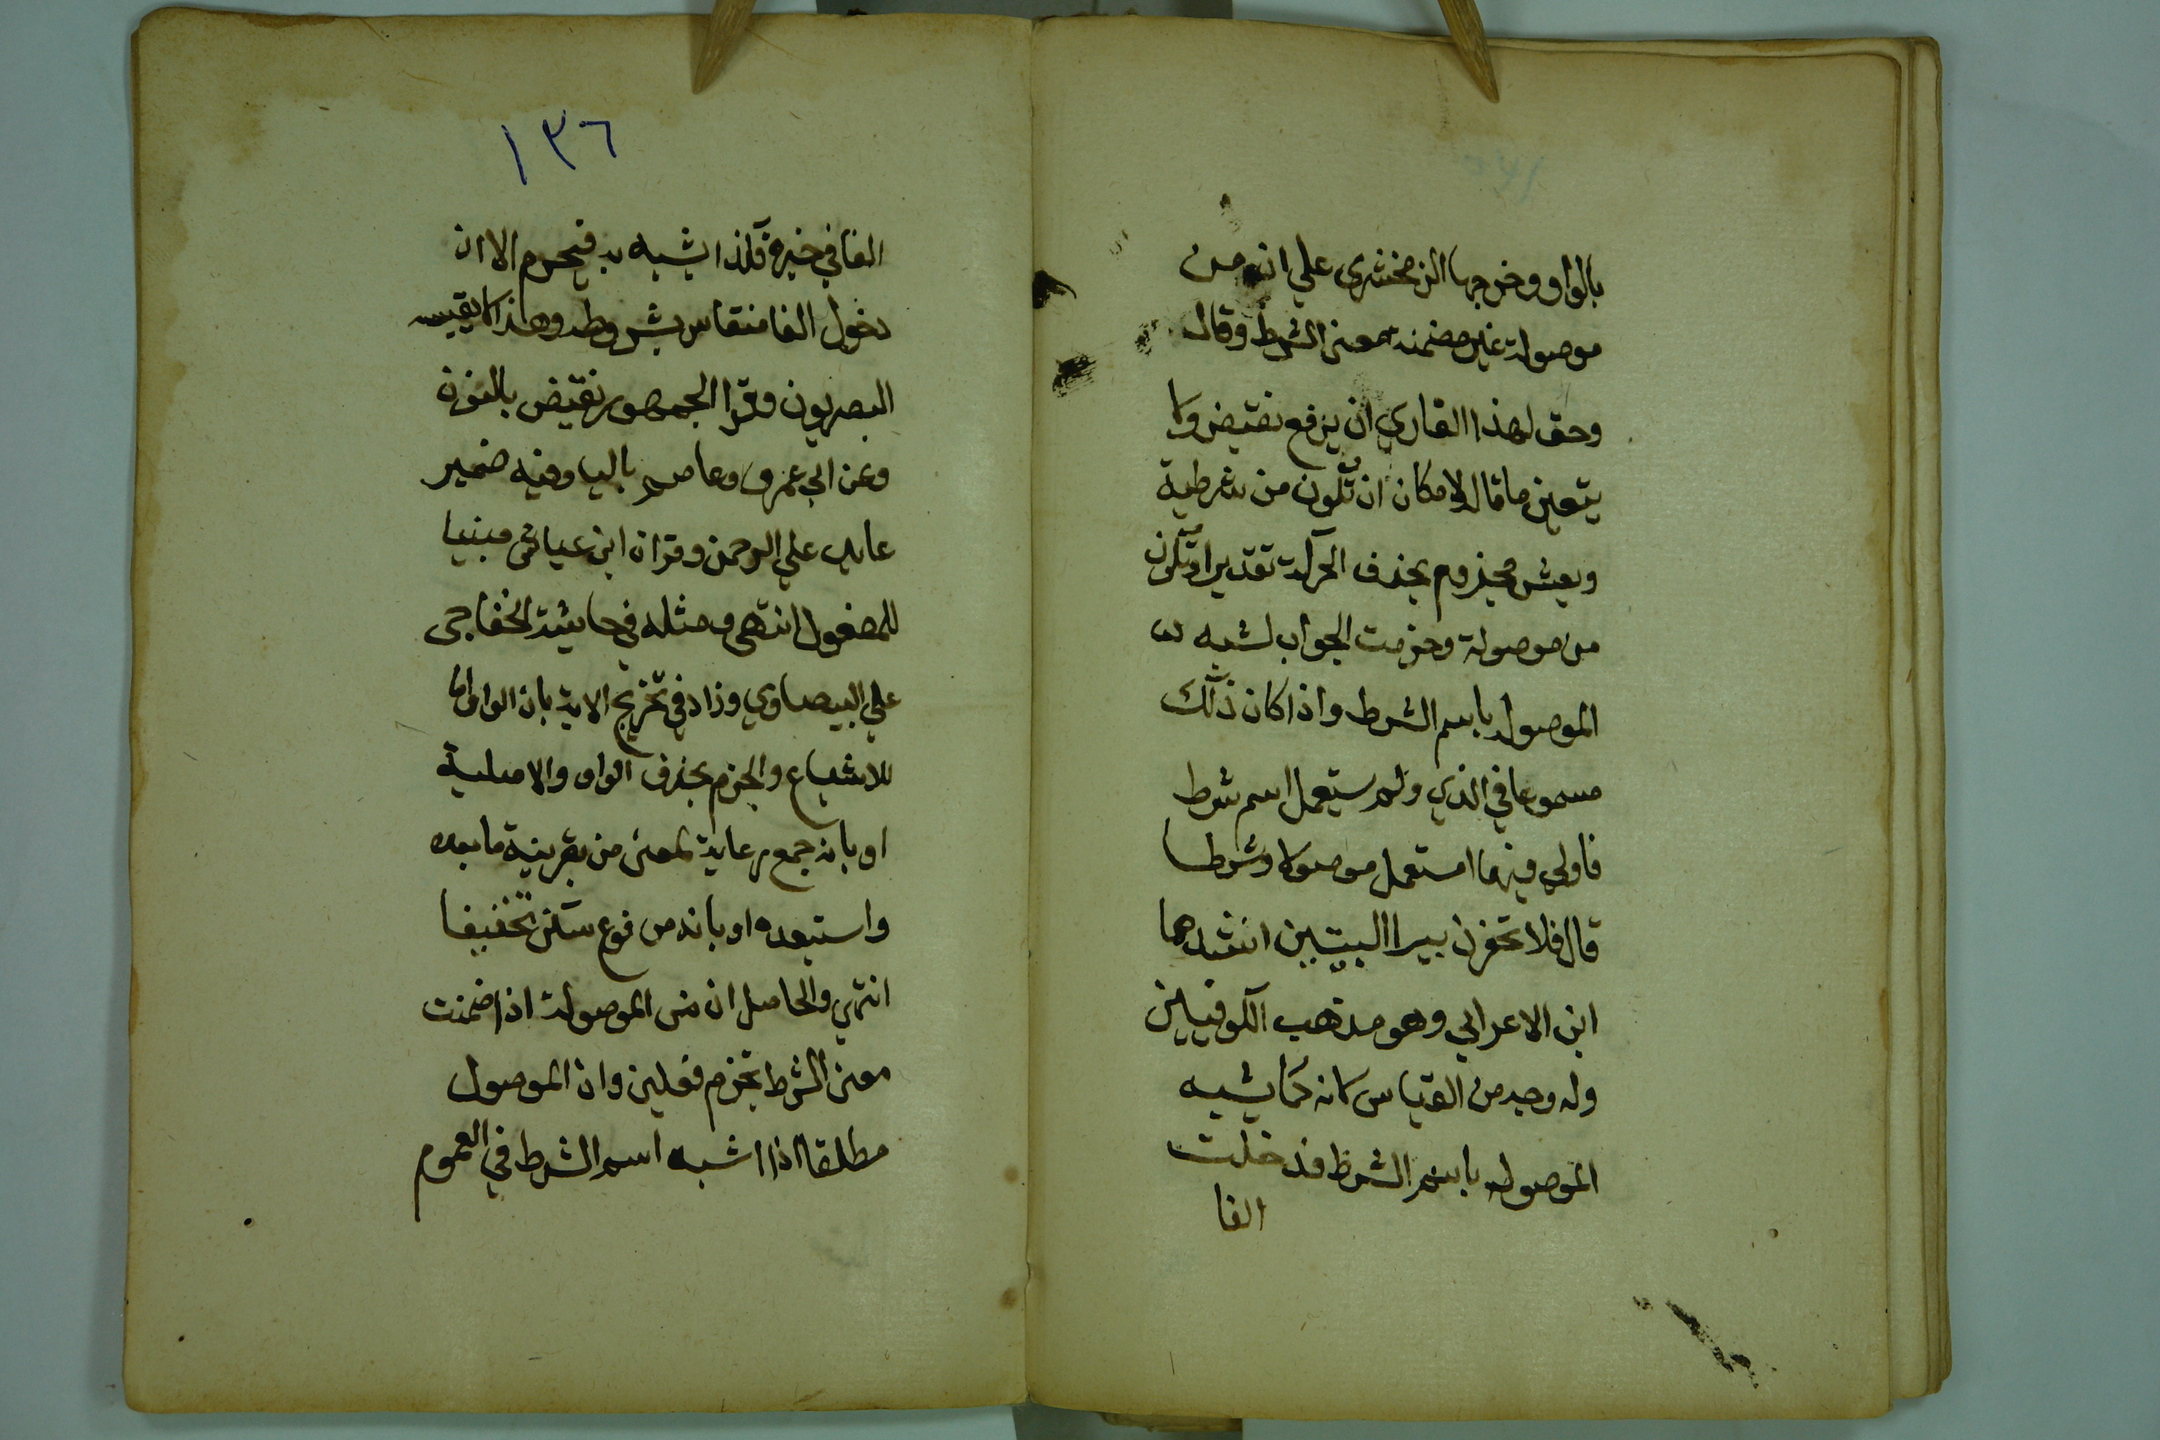 بالواو وخرجها الزمخشرى علي انه من
موصولة غير مضمنه معنى الشرط وقال
وحق لهذا القاري ان يرفع نقيض ولا
يتعين ما قال لامكان ان تكون من شرطية
ويعش مجزوم بحذف الحركة تقديرا وتكون
من موصولة وجزمت الجواب لشبه
الموصول باسم الشرط واذا كان ذلك
مسموعا في الذي ولم يستعمل اسم شرط
فاولي فيما استعمل موصولا وشرطا
قال فلا تحفرن بيرا البيتين انشدهما
ابن الاعرابي وهو مذهب الكوفيين
وله وجه من القياس كانه كما يشبه
الموصول باسم الشرط فدخلت
الفا
١٣٦
الفا في خبره فكذا يشبه به فيجزم الا ان
دخول الفا منقاس بشروطه وهذا لا يقيسه
البصريون وقرا الجمهور نقيض بالنون
وعن ابي عمرو وعاصم باليا وفيه ضمير
عايد علي الرحمن وقراه ابن عباس مبنيا
للمفعول انتهى ومثله في حاشية الخفاجى
علي البيضاوي وزاد في تخريج الاية بان الواو اما
للاشباع والجزم بحذف الواو والاصلية
او بانه جمع رعاية لمعنى من بقرينة ما بعده
واستبعده او بانه مرفوع سكن تخفيفا
انتهي والحاصل ان من الموصولة اذا ضمنت
معنى الشرط تجزم فعلين وان الموصول
مطلقا اذا اشبه اسم الشرط في العموم